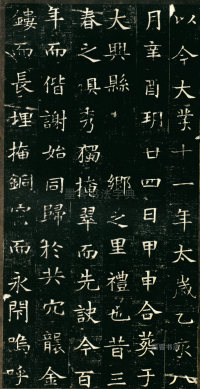 以今大業十一年太歲乙亥八
月辛酉朔廿四日甲申合葬于
大興縣　鄉之里禮也昔三
春之俱秀獨掩翠而先訣今百
年而偕謝始同歸於共穴襲金
鏤而長埋掩銅宫而永閇嗚呼